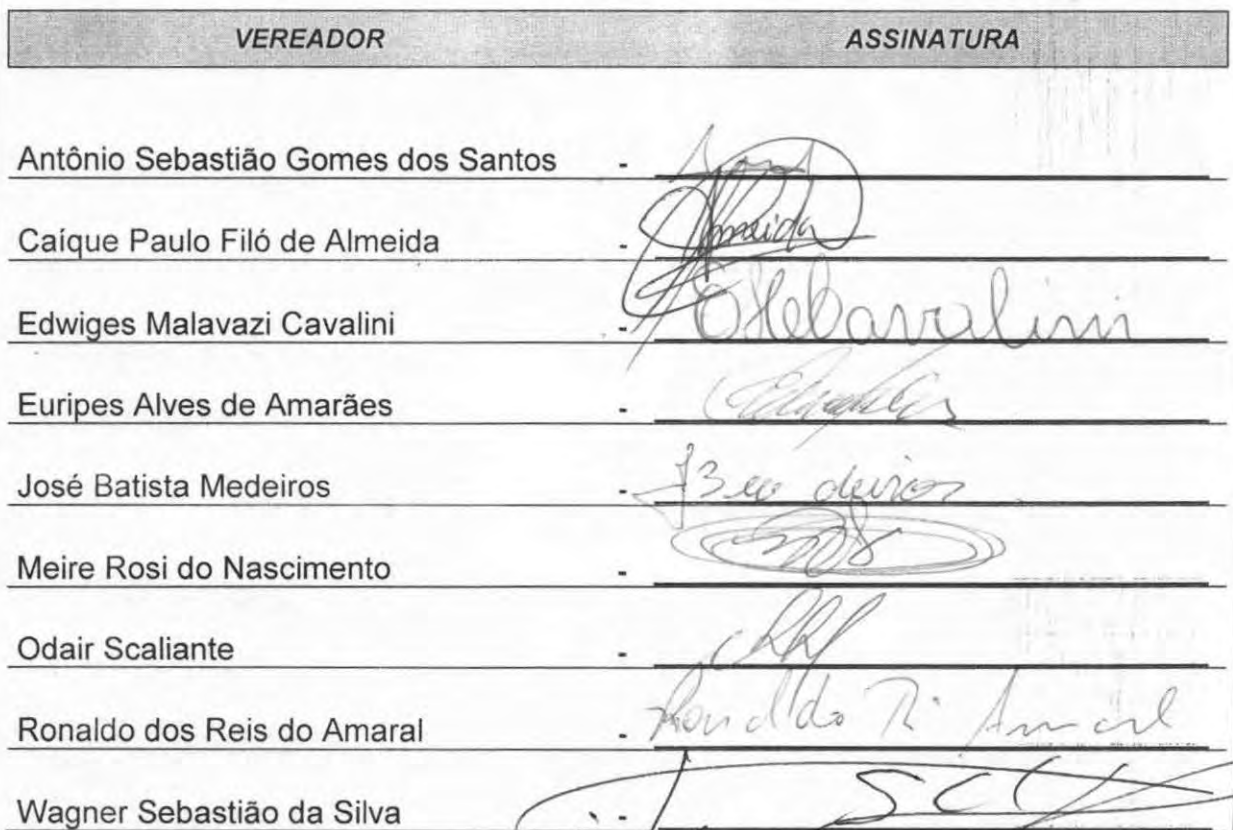 VEREADOR ASSINATURA
Antônio Sebastião Gomes dos Santos -
Caíque Paulo Filó de Almeida - Almeida
Edwiges Malavazi Cavalini - Cavalini
Euripes Alves de Amarães -
José Batista Medeiros -
Meire Rosi do Nascimento -
Odair Scaliante -
Ronaldo dos Reis do Amaral - Ronaldo R. Amaral
Wagner Sebastião da Silva -